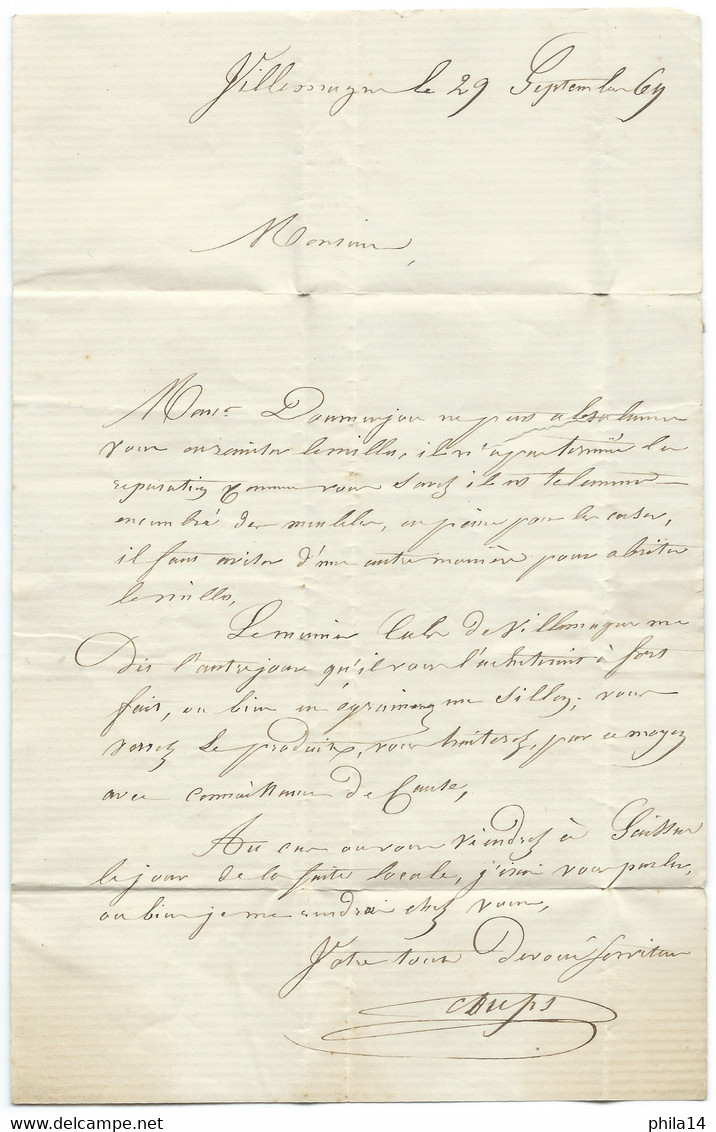 Villemagne le 29 Septembre 69
Monsieur,
Monr. Doumenjou ne peut absolument
vous le millet, il n'a pas terminé les
reparations comme vous savez il est tellement
encombré des meubles, en peine pour les caser,
il faut aviser d'une autre manière pour abriter
le millet,
Le meunier de Villemagne me
Dit l'autre jour qu'il vous l'achèterait à fort
fait, ou bien en égrainerez une sillon; vous
verrez le produit, vous traiterez, par ce moyen
avec connaissance De Cause,
Au cas ou vous viendrez à
le jour de la faite locale, j'irai vous parler,
ou bien je me rendrai chez vous,
Votre tout Devoué serviteur
phila14